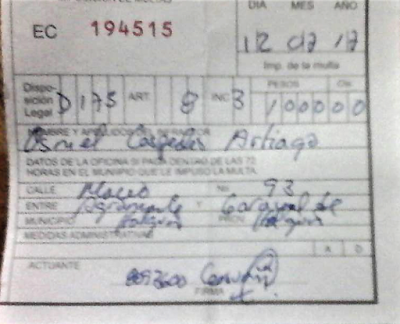 DIA MES AÑO
EC 194515
12 07 17
Imp. de la multa
PESOS Cts
Dispo-
sición
Legal D 175 ART. 8 INC 3 100000
NOMBRE Y APELLIDOS DEL INFRACTOR
Osniel Céspedes Artiaga
DATOS DE LA OFICINA SI PAGA DENTRO DE LAS 72
HORAS EN EL MUNICIPIO QUE LE IMPUSO LA MULTA.
CALLE Maceo No. 93
ENTRE Agramonte Y
MUNICIPIO Holguín PROV. Holguín
MEDIDAS ADMINISTRATIVAS
ACTUANTE
FIRMA